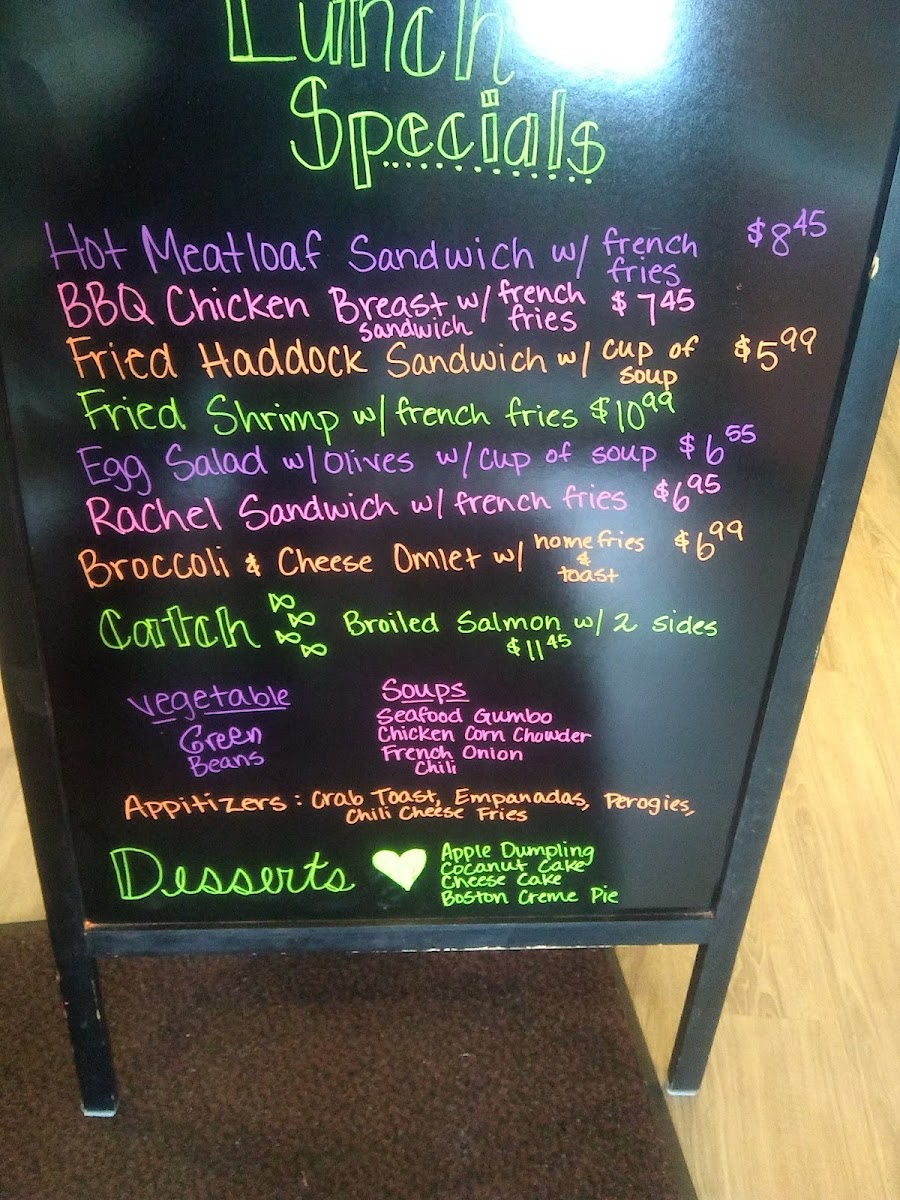 Lunch
Specials
Hot Meatloaf Sandwich w/ french fries $8.45
BBQ Chicken Breast sandwich w/ french fries $7.45
Fried Haddock Sandwich w/ cup of soup $5.99
Fried Shrimp w/ french fries $10.99
Egg Salad w/ olives w/ cup of soup $6.55
Rachel Sandwich w/ french fries $6.95
Broccoli & Cheese Omlet w/ homefries & toast $6.99
Catch Broiled Salmon w/ 2 sides
$11.45
Vegetable
Green
Beans
Soups
Seafood Gumbo
Chicken Corn Chowder
French Onion
Chili
Appitizers: Crab Toast, Empanadas, Perogies,
Chili Cheese Fries
Desserts
Apple Dumpling
Coconut Cake
Cheese Cake
Boston Creme Pie